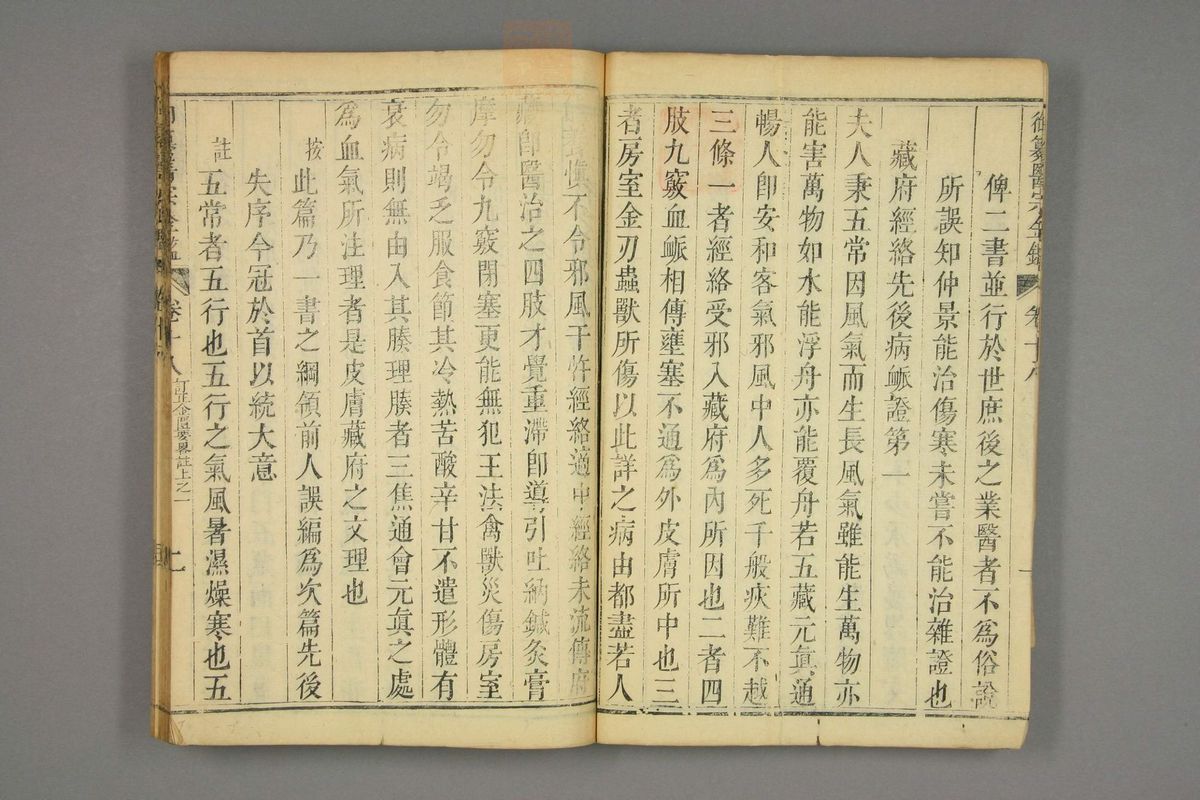 御纂醫宗金鑑 卷十八
俾二書並行於世庶後之業醫者不爲俗說
所誤知仲景能治傷寒未嘗不能治雜證也
藏府經絡先後病脈證第一
夫人秉五常因風氣而生長風氣雖能生萬物亦
能害萬物如水能浮舟亦能覆舟若五藏元眞通
暢人卽安和客氣邪風中人多死千般疢難不越
三條一者經絡受邪入藏府爲內所因也二者四
肢九竅血脈相傳壅塞不通爲外皮膚所中也三
者房室金刃蟲獸所傷以此詳之病由都盡若人
能養愼不令邪風干忤經絡適中經絡未流傳府
藏卽醫治之四肢才覺重滯卽導引吐納鍼灸膏
摩勿令九竅閉塞更能無犯王法禽獸災傷房室
勿令竭乏服食節其冷熱苦酸辛甘不遺形體有
衰病則無由入其腠理腠者三焦通會元眞之處
爲血氣所注理者是皮膚藏府之文理也
按此篇乃一書之綱領前人誤編爲次篇先後
失序今冠於首以統大意
註五常者五行也五行之氣風暑濕燥寒也五
卷十八 訂正金匱要畧註上之一 七